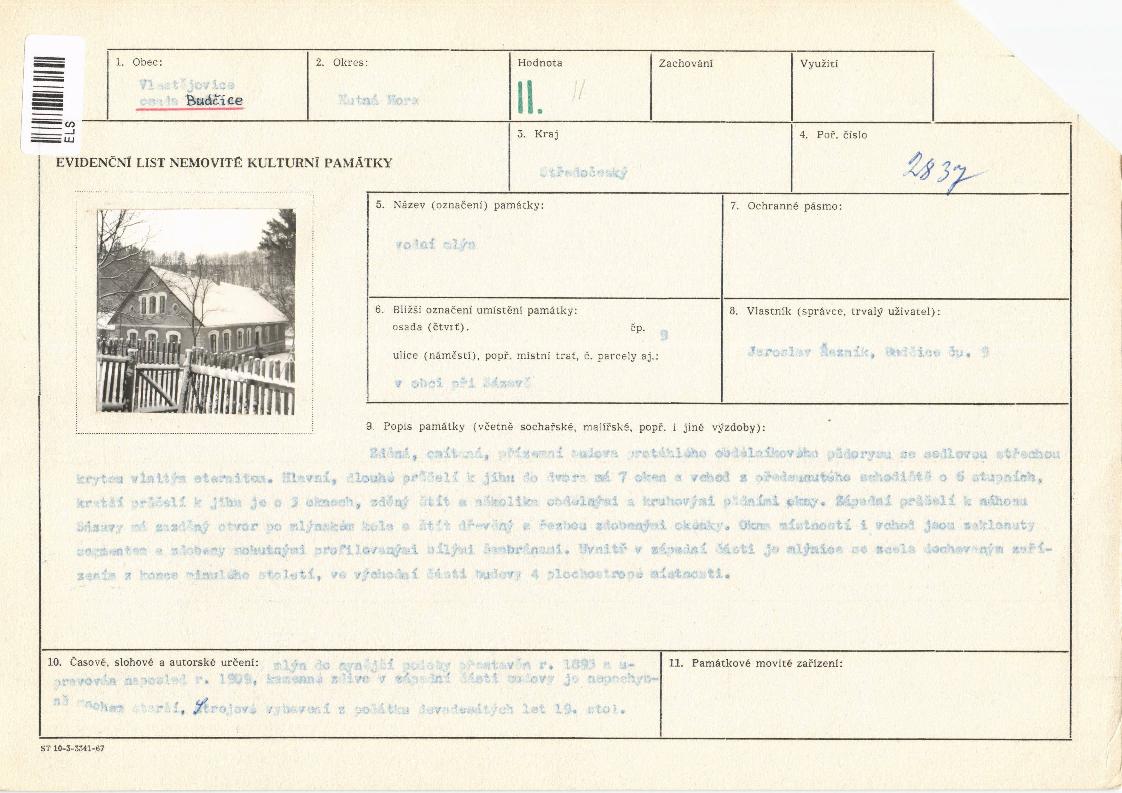 ELS
1. Obec:
Vlastějovice
osada Budčice
2. Okres:
Kutná Hora
Hodnota
II.
Zachování
Využití
3. Kraj
Středočeský
4. Poř. číslo
2837
EVIDENČNÍ LIST NEMOVITÉ KULTURNÍ PAMÁTKY
5. Název (označení) památky:
vodní mlýn
7. Ochranné pásmo:
6. Bližší označení umístění památky:
osada (čtvrť).
čp. 9
ulice (náměstí), popř. místní trať, č. parcely aj.:
v obci při Sázavě
8. Vlastník (správce, trvalý uživatel):
Jaroslav Řezník, Budčice čp. 9
9. Popis památky (včetně sochařské, malířské, popř. i jiné výzdoby):
Zděná, omítaná, přízemní budova protáhlého obdélníkového půdorysu se sedlovou střechou
krytou vlnitým eternitem. Hlavní, dlouhé průčelí k jihu do dvora má 7 oken a vchod z předsunutého schodiště o 6 stupních,
kratší průčelí k jihu je o 3 oknech, zděný štít a několika obdélnými a kruhovými půdními okny. Západní průčelí k náhonu
Sázavy má zazděný otvor po mlýnském kole a štít dřevěný s řezbou zdobenými okénky. Okna místností i vchod jsou zaklenuty
segmentem a zdobeny mohutnými profilovanými bílými šambránami. Uvnitř v západní části je mlýnice se zcela dochovaným zaří-
zením z konce minulého století, ve východní části budovy 4 plochostropé místnosti.
10. Časové, slohové a autorské určení: mlýn do nynější podoby přestavěn r. 1893 a u-
pravován naposled r. 1909, kamenné zdivo v západní části budovy je nepochyb-
ně mnohem starší, Strojové vybavení z počátku devadesátých let 19. stol.
11. Památkové movité zařízení:
ST 10-3-3341-67